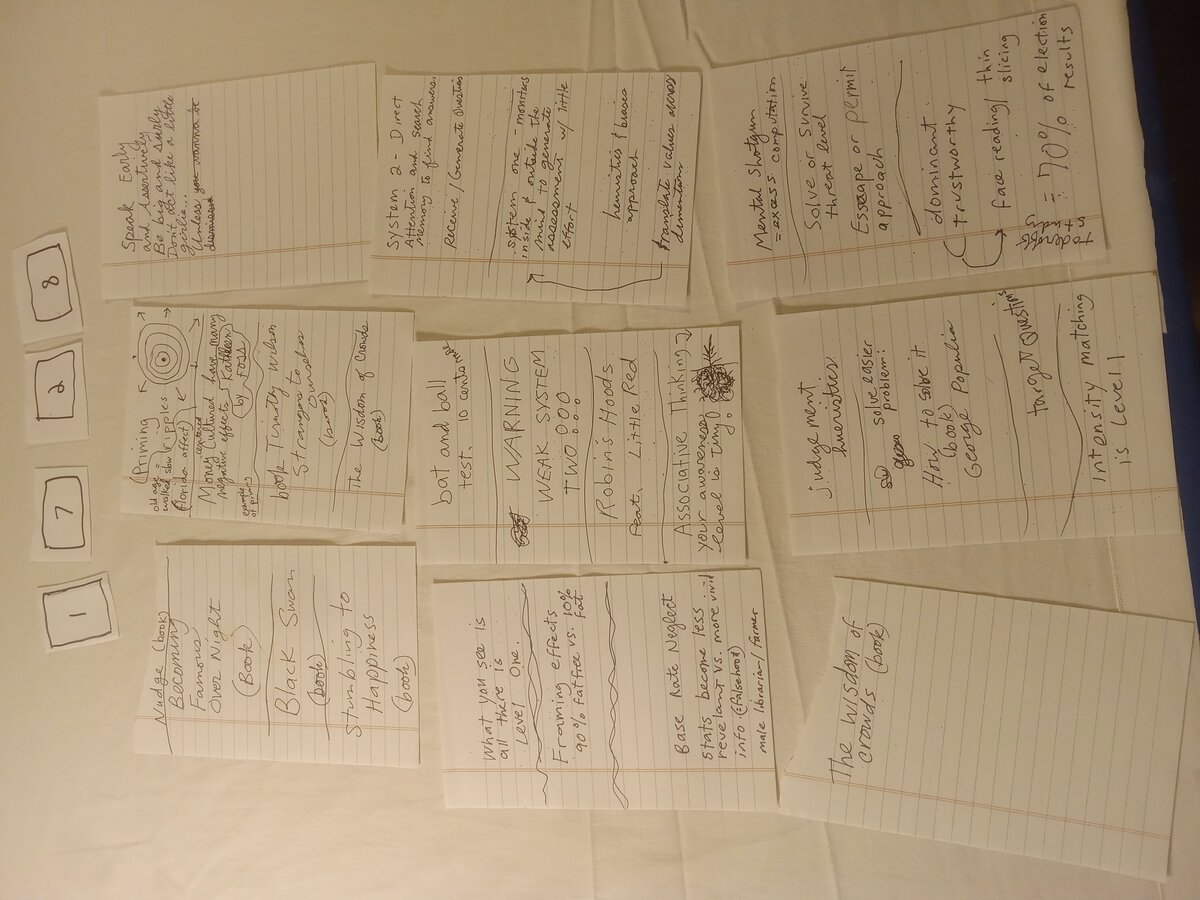 1 7 2 8
Nudge (book)
Becoming
Famous
Over Night
(Book)
Black Swan
(book)
Stumbling to
Happiness
(book)
(Priming
old age =
walked slow
ripples
(florida affect)
Money centered
Cultured have many
negative effects Kathleen
(by FOSS)
example
of prime
book Timothy Wilson
Strangers to
Ourselves
(book)
The Wisdom of Crowds
(book)
Speak Early
and Assertively
Be big and surly
Don't act like a little
girlie...
Unless you wanna be
dismissed
What you see is
all there is
Level One
Framing effects
90% fat free vs. 10%
Fat
Base Rate Neglect
Stats become less :=
revelant vs. more vivid
info (=falsehood)
male librarian/farmer
bat and ball
test. 10 cents
WARNING
WEAK SYSTEM
TWO
Robin's Hoods
Feat. Little Red
Associative Thinking
your awareness
level is Tiny!
System 2 - Direct
Attention and Search
memory to find answers.
Receive/Generate Question
System one - monitors
inside & outside the
mind to generate
assessment w/ little
effort
heuristics & biases
approach
translate values across
dimentions
The Wisdom of
crowds (book)
judgement
hueristics
solve easier
problem:
How to solve it
(book)
George Populia
target Questions
intensity matching
is level 1
Mental Shotgun
= excess computation
Solve or survive
threat level
Escape or permit
approach
dominant
trustworthy
face reading/thin
slicing
= 70% of election
results